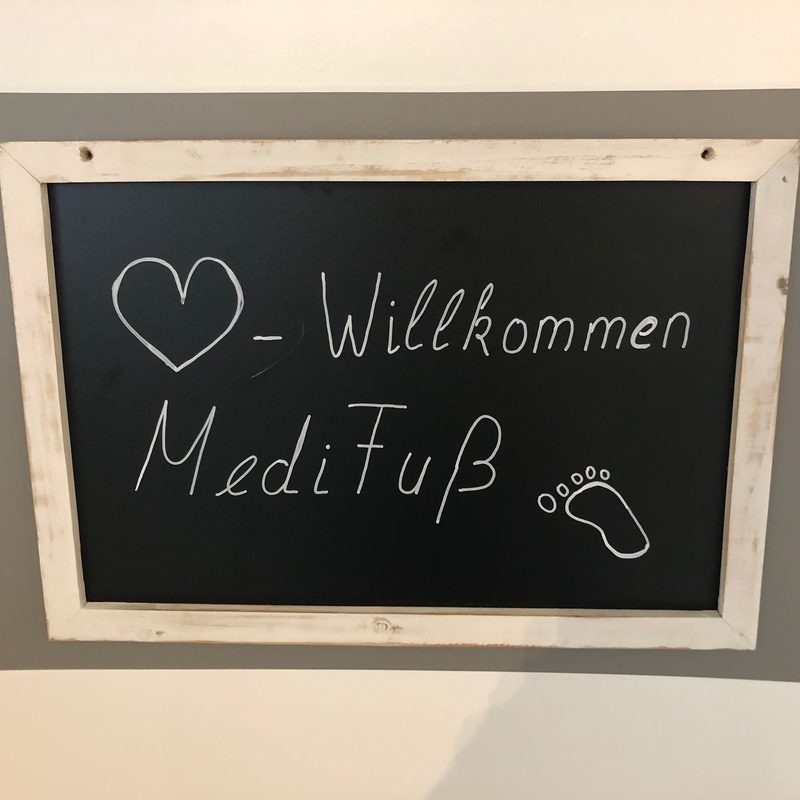 ♡ - Willkommen
MediFuß